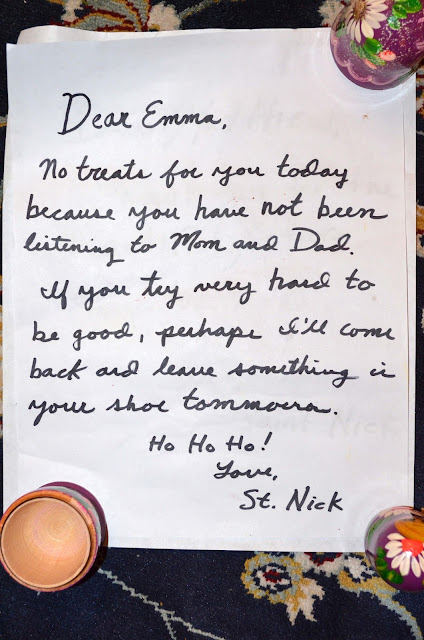 Dear Emma,
No treats for you today
because you have not been
listening to Mom and Dad.
If you try very hard to
be good, perhaps I'll come
back and leave something in
your shoe tommoera.
Ho Ho Ho!
Love,
St. Nick